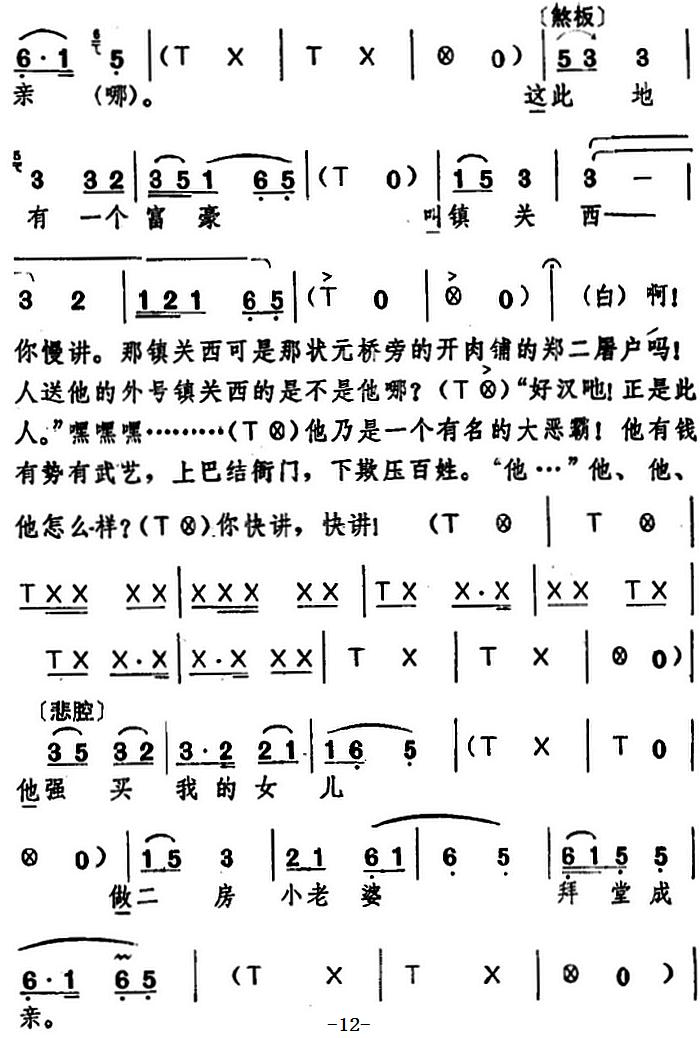 〔煞板〕
6·1 6 5 | (T X | T X | ⊗ 0) | 53 3
亲 (哪)。 这此 地
5 3 32 | 351 65 | (T 0) | 15 3 | 3 —
有 一个 富豪 叫镇 关 西——
3 2 | 121 65 | (T 0 | ⊗ 0) | (白) 啊!
你慢讲。那镇关西可是那状元桥旁的开肉铺的郑二屠户吗!
人送他的外号镇关西的是不是他哪?(T ⊗)“好汉吔!正是此
人。”嘿嘿嘿………(T ⊗)他乃是一个有名的大恶霸!他有钱
有势有武艺,上巴结衙门,下欺压百姓。“他…”他、他、
他怎么样?(T ⊗)你快讲,快讲! (T ⊗ | T ⊗ |
TXX XX | XXX XX | TX X·X | XX TX |
TX X·X | X·X XX | T X | T X | ⊗ 0) |
〔悲腔〕
35 32 | 3·2 21 | 16 5 | (T X | T 0 |
他强 买 我的女 儿
⊗ 0) | 15 3 | 21 61 | 6 5 | 615 5 |
做二 房 小老婆 拜堂成
6·1 65 | (T X | T X | ⊗ 0) |
亲。
-12-